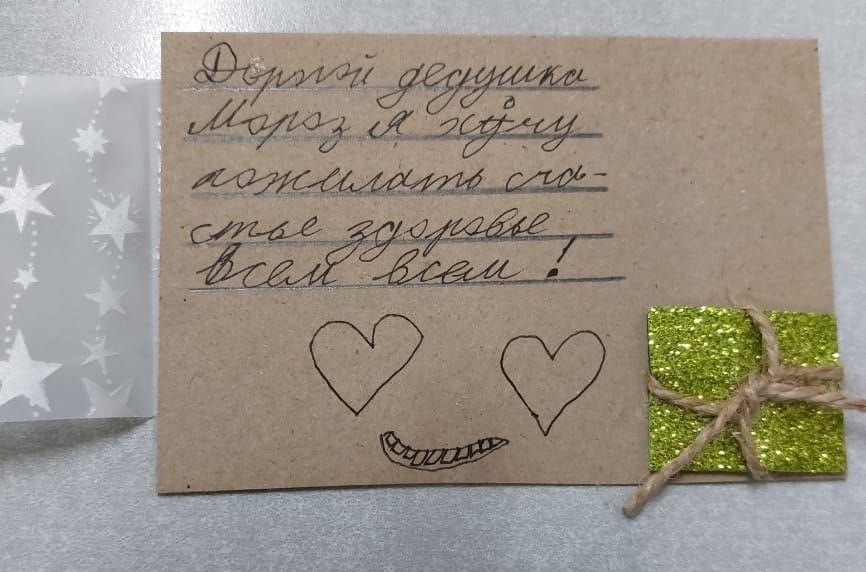 Дорогой дедушка
Мороз я хочу
пожелать сча-
стье здоровье
всем всем!